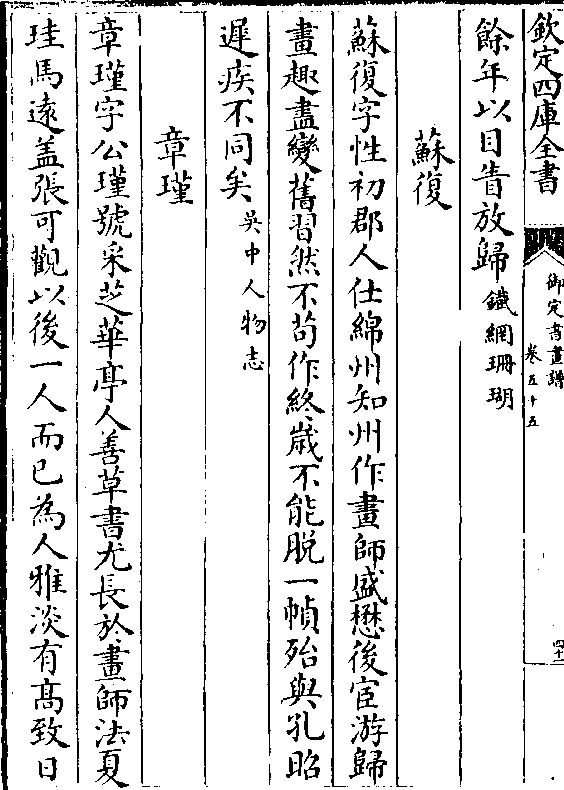 欽定四庫全書
御定書畫譜
卷五十五
四十二
餘年以目眚放歸鐵網珊瑚
蘇復
蘇復字性初郡人仕綿州知州作畫師盛懋後宦游歸
畫趣盡變舊習然不苟作終歲不能脫一幀殆與孔昭
遲疾不同矣吳中人物志
章瑾
章瑾字公瑾號采芝華亭人善草書尤長於畫師法夏
珪馬遠盖張可觀以後一人而已為人雅淡有髙致日